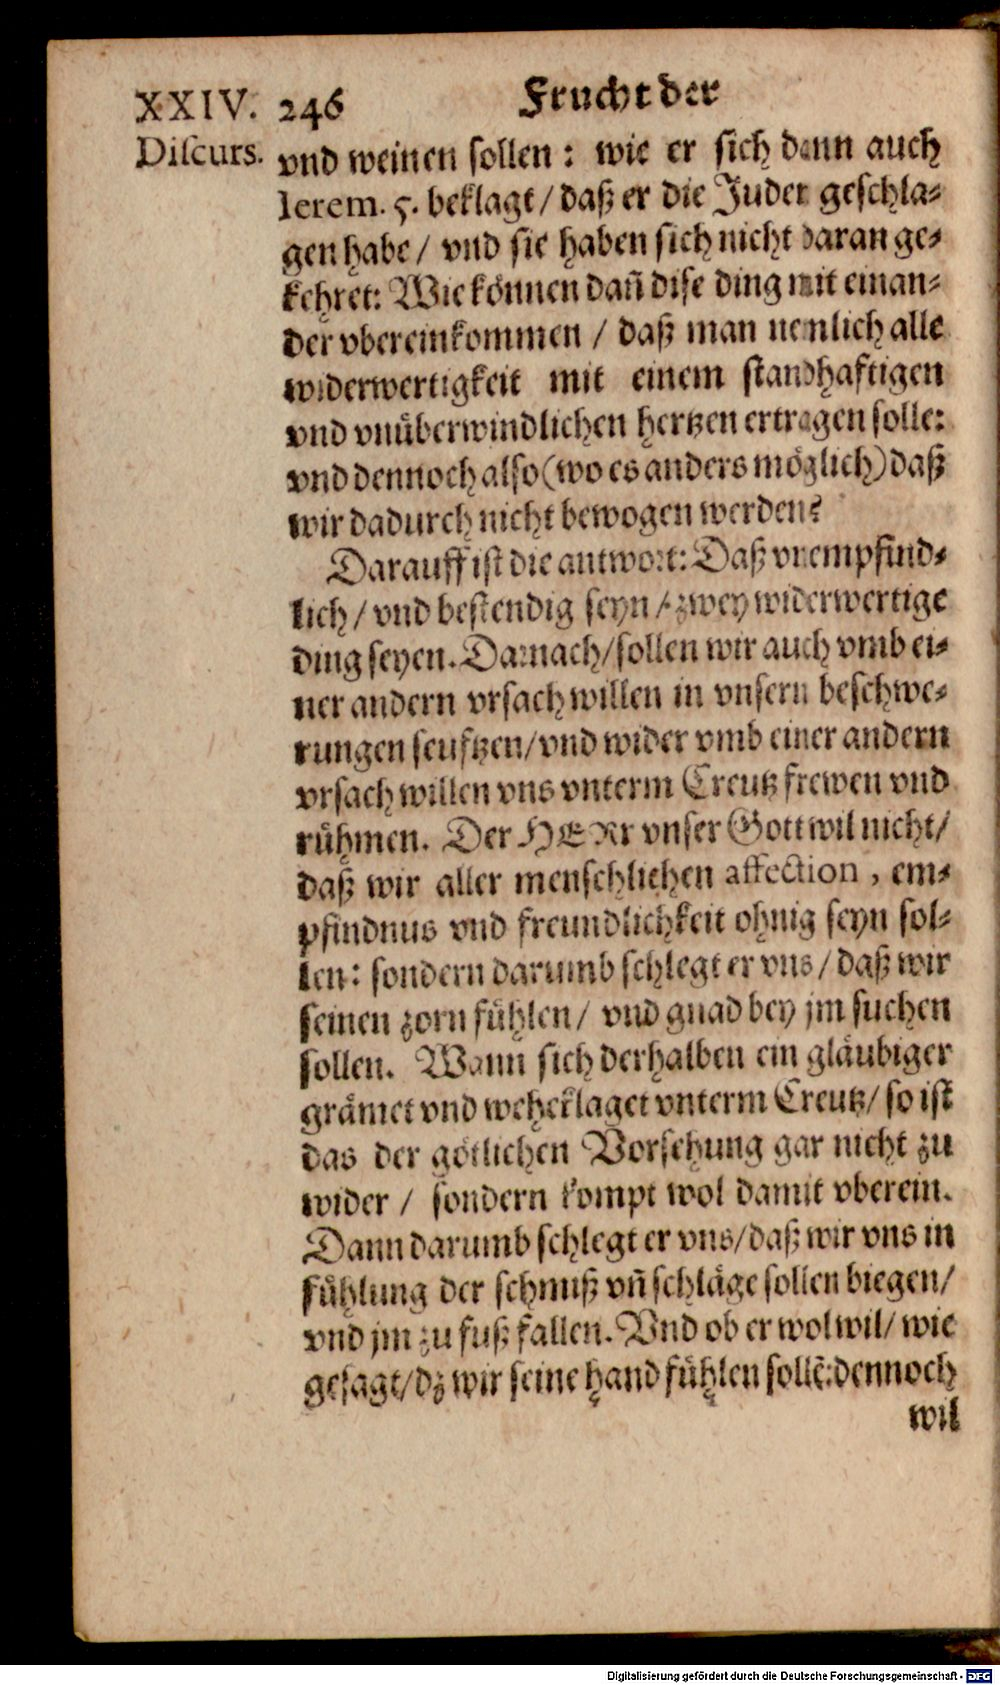 XXIV. 246 Frucht der
Discurs.
vnd weinen sollen: wie er sich dann auch
Ierem. 5. beklagt/ daß er die Juden geschla-
gen habe/ vnd sie haben sich nicht daran ge-
kehret: Wie können dañ dise ding mit einan-
der vbereinkommen / daß man nemlich alle
widerwertigkeit mit einem standhafftigen
vnd vnüberwindlichen hertzen ertragen solle:
vnd dennoch also (wo es anders möglich) daß
wir dadurch nicht bewogen werden?
Darauff ist die antwort: Daß vnempfind-
lich/ vnd bestendig seyn / zwey widerwertige
ding seyen. Darnach/ sollen wir auch vmb ei-
ner andern vrsach willen in vnsern beschwe-
rungen seufftzen/ vnd wider vmb einer andern
vrsach willen vns vnterm Creutz frewen vnd
rühmen. Der HERr vnser Gott wil nicht/
daß wir aller menschlichen affection, em-
pfindnus vnd freundlichkeit ohnig seyn sol-
len: sondern darumb schlegt er vns/ daß wir
seinen zorn fühlen/ vnd gnad bey jm suchen
sollen. Wann sich derhalben ein gläubiger
grämet vnd weheklaget vnterm Creutz/ so ist
das der götlichen Vorsehung gar nicht zu
wider / sondern kompt wol damit vberein.
Dann darumb schlegt er vns/ daß wir vns in
fühlung der schmiß vñ schläge sollen biegen/
vnd jm zu fuß fallen. Vnd ob er wol wil/ wie
gesagt/ dz wir seine hand fühlen sollẽ: dennoch
wil
Digitalisierung gefördert durch die Deutsche Forschungsgemeinschaft - DFG